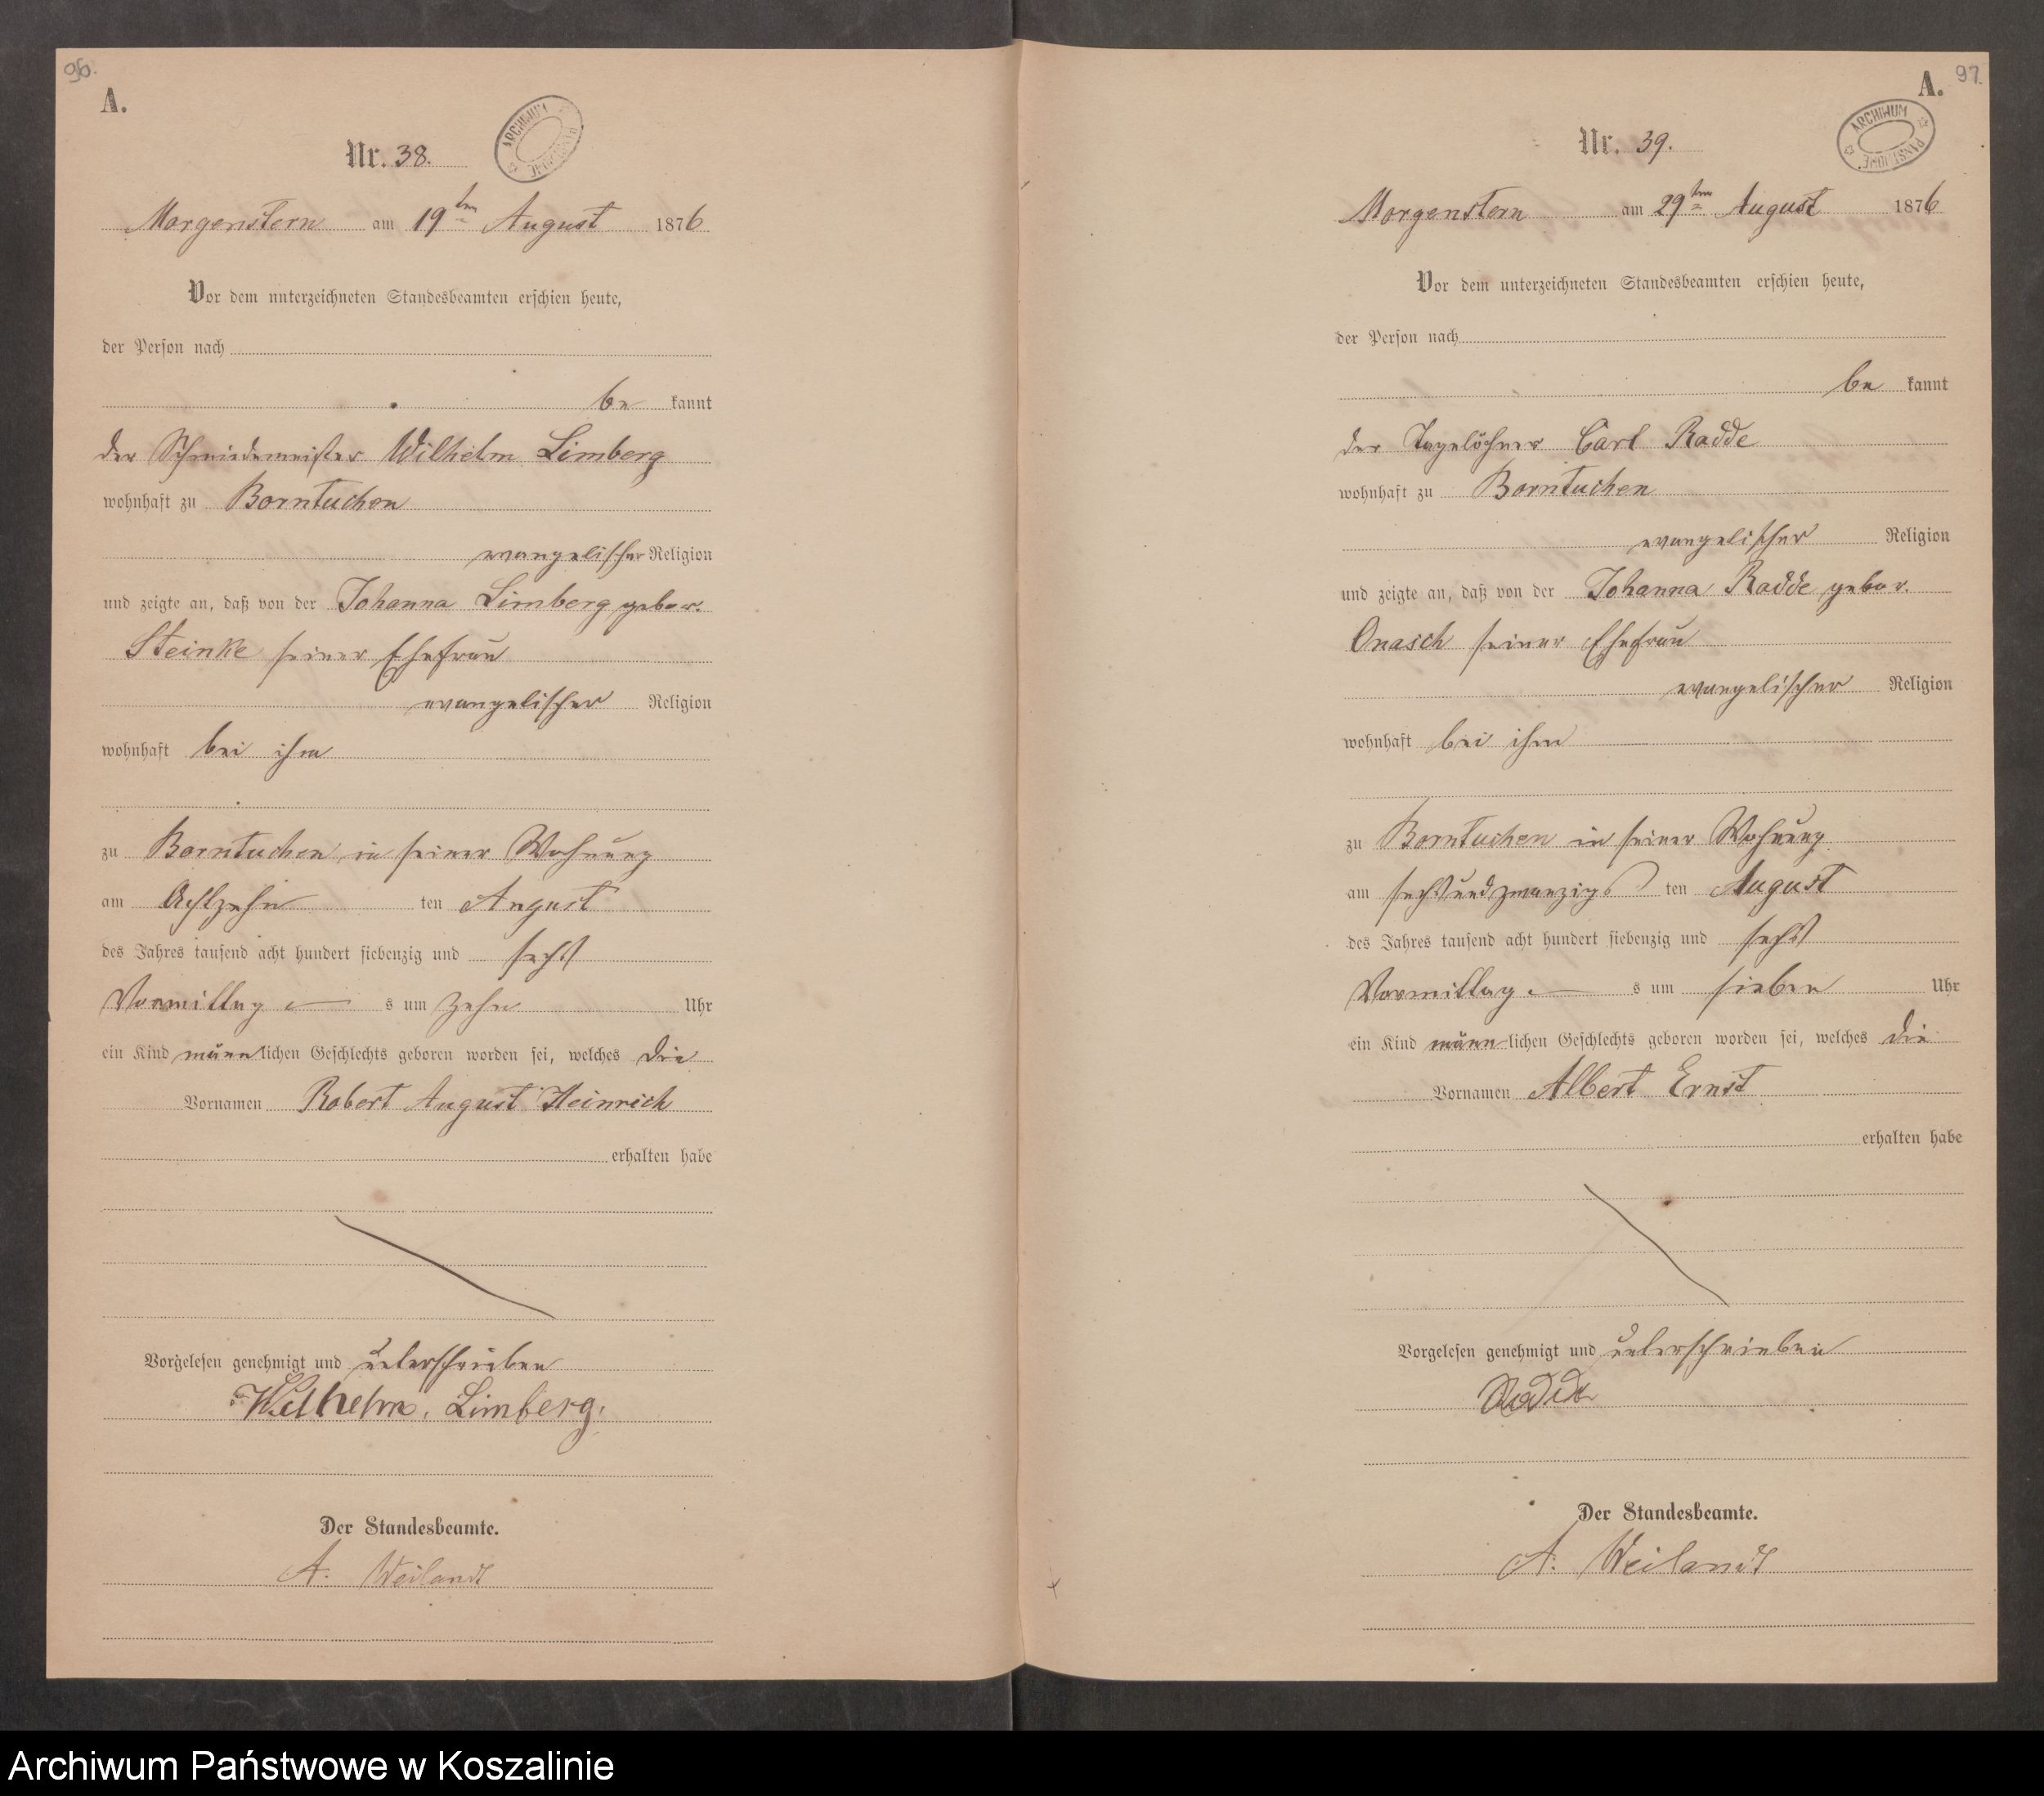 96.
A.
ARCHIWUM PAŃSTWOWE
Nr. 38.
Morgenstern am 19ten August 1876
Vor dem unterzeichneten Standesbeamten erschien heute,
der Person nach
be kannt
der Schmiedemeister Wilhelm Limberg
wohnhaft zu Borntuchen
evangelischer Religion
und zeigte an, daß von der Johanna Limberg gebor.
Steinke seiner Ehefrau
evangelischer Religion
wohnhaft bei ihm
zu Borntuchen in seiner Wohnung
am Achtzehn ten August
des Jahres tausend acht hundert siebenzig und sechs
Vormittag s um zehn Uhr
ein Kind männlichen Geschlechts geboren worden sei, welches die
Vornamen Robert August Heinrich
erhalten habe
Vorgelesen genehmigt und unterschrieben
Wilhelm. Limberg.
Der Standesbeamte.
A. Weilandt
97.
A.
ARCHIWUM PAŃSTWOWE
Nr. 39.
Morgenstern am 29ten August 1876
Vor dem unterzeichneten Standesbeamten erschien heute,
der Person nach
be kannt
der Tagelöhner Carl Radde
wohnhaft zu Borntuchen
evangelischer Religion
und zeigte an, daß von der Johanna Radde gebor.
Onasch seiner Ehefrau
evangelischer Religion
wohnhaft bei ihm
zu Borntuchen in seiner Wohnung
am sechsundzwanzigs ten August
des Jahres tausend acht hundert siebenzig und sechs
Vormittag s um sieben Uhr
ein Kind männlichen Geschlechts geboren worden sei, welches die
Vornamen Albert Ernst
erhalten habe
Vorgelesen genehmigt und unterschrieben
Radde
Der Standesbeamte.
A. Weilandt
Archiwum Państwowe w Koszalinie